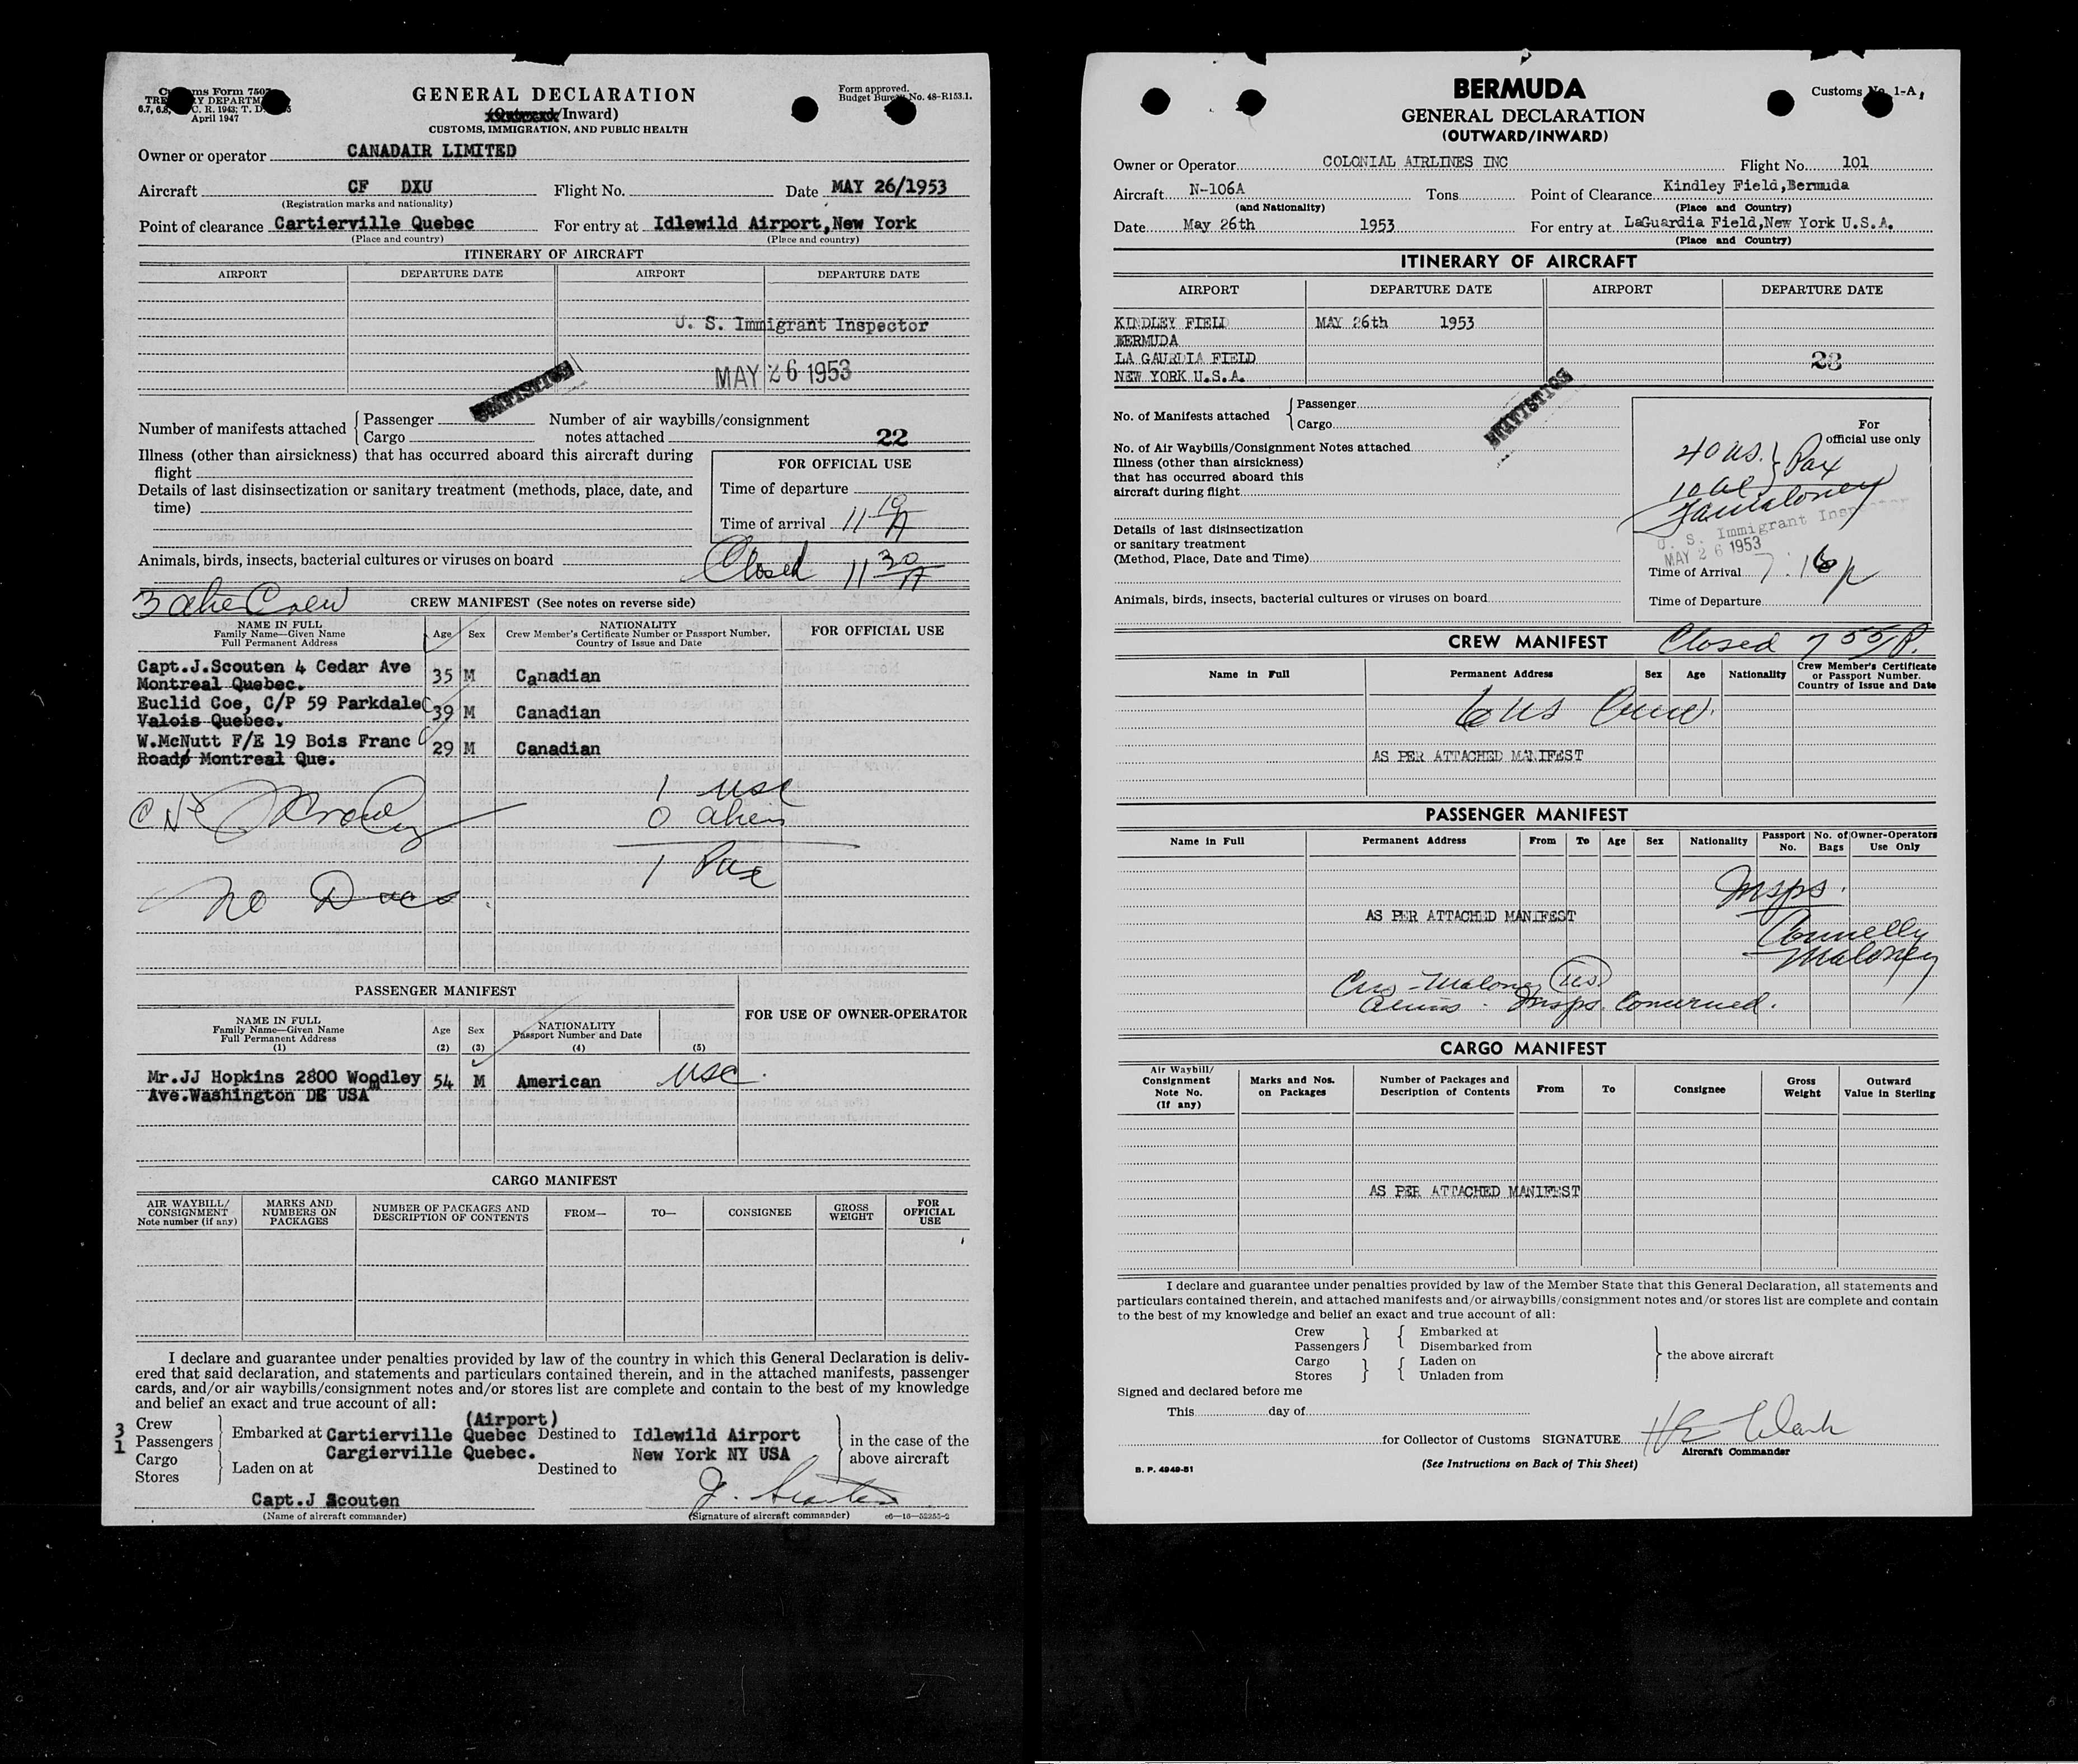 Customs Form 7507
TREASURY DEPARTMENT
6.7, 6.8, C. R. 1943; T. D.
April 1947
GENERAL DECLARATION
(Outward/Inward)
CUSTOMS, IMMIGRATION, AND PUBLIC HEALTH
Form approved.
Budget Bureau No. 48-R153.1.
Owner or operator CANADAIR LIMITED
Aircraft CF DXU Flight No. Date MAY 26/1953
(Registration marks and nationality)
Point of clearance Cartierville Quebec For entry at Idlewild Airport,New York
(Place and country) (Place and country)
ITINERARY OF AIRCRAFT
AIRPORT DEPARTURE DATE AIRPORT DEPARTURE DATE
U. S. Immigrant Inspector
MAY 26 1953
STATISTICS
Number of manifests attached { Passenger
Cargo
Number of air waybills/consignment
notes attached 22
Illness (other than airsickness) that has occurred aboard this aircraft during
flight
Details of last disinsectization or sanitary treatment (methods, place, date, and
time)
FOR OFFICIAL USE
Time of departure
Time of arrival 11 10 A
Animals, birds, insects, bacterial cultures or viruses on board
Closed 11 30 A
3 alie Crew CREW MANIFEST (See notes on reverse side)
NAME IN FULL
Family Name—Given Name
Full Permanent Address
Age Sex
NATIONALITY
Crew Member's Certificate Number or Passport Number,
Country of Issue and Date
FOR OFFICIAL USE
Capt.J.Scouten 4 Cedar Ave
Montreal Quebec. 35 M Canadian
Euclid Coe, C/P 59 Parkdale
Valois Quebec. 39 M Canadian
W.McNutt F/E 19 Bois Franc
Road Montreal Que. 29 M Canadian
1 USC
0 Alien
1 Pax
No Docs
PASSENGER MANIFEST
NAME IN FULL
Family Name—Given Name
Full Permanent Address
(1)
Age
(2)
Sex
(3)
NATIONALITY
Passport Number and Date
(4) (5)
FOR USE OF OWNER-OPERATOR
Mr.JJ Hopkins 2800 Woodley 54 M American USC
Ave.Washington DE USA
CARGO MANIFEST
AIR WAYBILL/
CONSIGNMENT
Note number (if any)
MARKS AND
NUMBERS ON
PACKAGES
NUMBER OF PACKAGES AND
DESCRIPTION OF CONTENTS
FROM— TO— CONSIGNEE
GROSS
WEIGHT
FOR
OFFICIAL
USE
I declare and guarantee under penalties provided by law of the country in which this General Declaration is deliv-
ered that said declaration, and statements and particulars contained therein, and in the attached manifests, passenger
cards, and/or air waybills/consignment notes and/or stores list are complete and contain to the best of my knowledge
and belief an exact and true account of all:
3 Crew
1 Passengers
Cargo
Stores
(Airport)
Embarked at Cartierville Quebec Destined to Idlewild Airport
Cargierville Quebec. New York NY USA
Laden on at Destined to
in the case of the
above aircraft
Capt.J Scouten J. Scouten
(Name of aircraft commander) (Signature of aircraft commander) c6—16—52255-2
BERMUDA
GENERAL DECLARATION
(OUTWARD/INWARD)
Customs No. 1-A
Owner or Operator COLONIAL AIRLINES INC Flight No. 101
Aircraft N-106A Tons Point of Clearance Kindley Field,Bermuda
(and Nationality) (Place and Country)
Date May 26th 1953 For entry at LaGuardia Field,New York U.S.A.
(Place and Country)
ITINERARY OF AIRCRAFT
AIRPORT DEPARTURE DATE AIRPORT DEPARTURE DATE
KINDLEY FIELD MAY 26th 1953
BERMUDA
LA GAURDIA FIELD 23
NEW YORK U.S.A.
STATISTICS
No. of Manifests attached { Passenger
Cargo
No. of Air Waybills/Consignment Notes attached
Illness (other than airsickness)
that has occurred aboard this
aircraft during flight
Details of last disinsectization
or sanitary treatment
(Method, Place, Date and Time)
Animals, birds, insects, bacterial cultures or viruses on board
For
official use only
40 US. } Pax
10 Al
U. S. Immigrant Inspector
MAY 26 1953
Time of Arrival
Time of Departure
CREW MANIFEST Closed 7 55 P.
Name in Full Permanent Address Sex Age Nationality
Crew Member's Certificate
or Passport Number.
Country of Issue and Date
6 US Crew.
AS PER ATTACHED MANIFEST
PASSENGER MANIFEST
Name in Full Permanent Address From To Age Sex Nationality
Passport
No.
No. of
Bags
Owner-Operators
Use Only
Insps.
AS PER ATTACHED MANIFEST
Connelly
Maloney
Crw - Maloney (US)
Aliens - Insps. Concerned.
CARGO MANIFEST
Air Waybill/
Consignment
Note No.
(If any)
Marks and Nos.
on Packages
Number of Packages and
Description of Contents
From To Consignee
Gross
Weight
Outward
Value in Sterling
AS PER ATTACHED MANIFEST
I declare and guarantee under penalties provided by law of the Member State that this General Declaration, all statements and
particulars contained therein, and attached manifests and/or airwaybills/consignment notes and/or stores list are complete and contain
to the best of my knowledge and belief an exact and true account of all:
Crew } { Embarked at
Passengers Disembarked from
Cargo } { Laden on
Stores Unladen from
} the above aircraft
Signed and declared before me
This day of
for Collector of Customs SIGNATURE
Aircraft Commander
B. P. 4949-51 (See Instructions on Back of This Sheet)